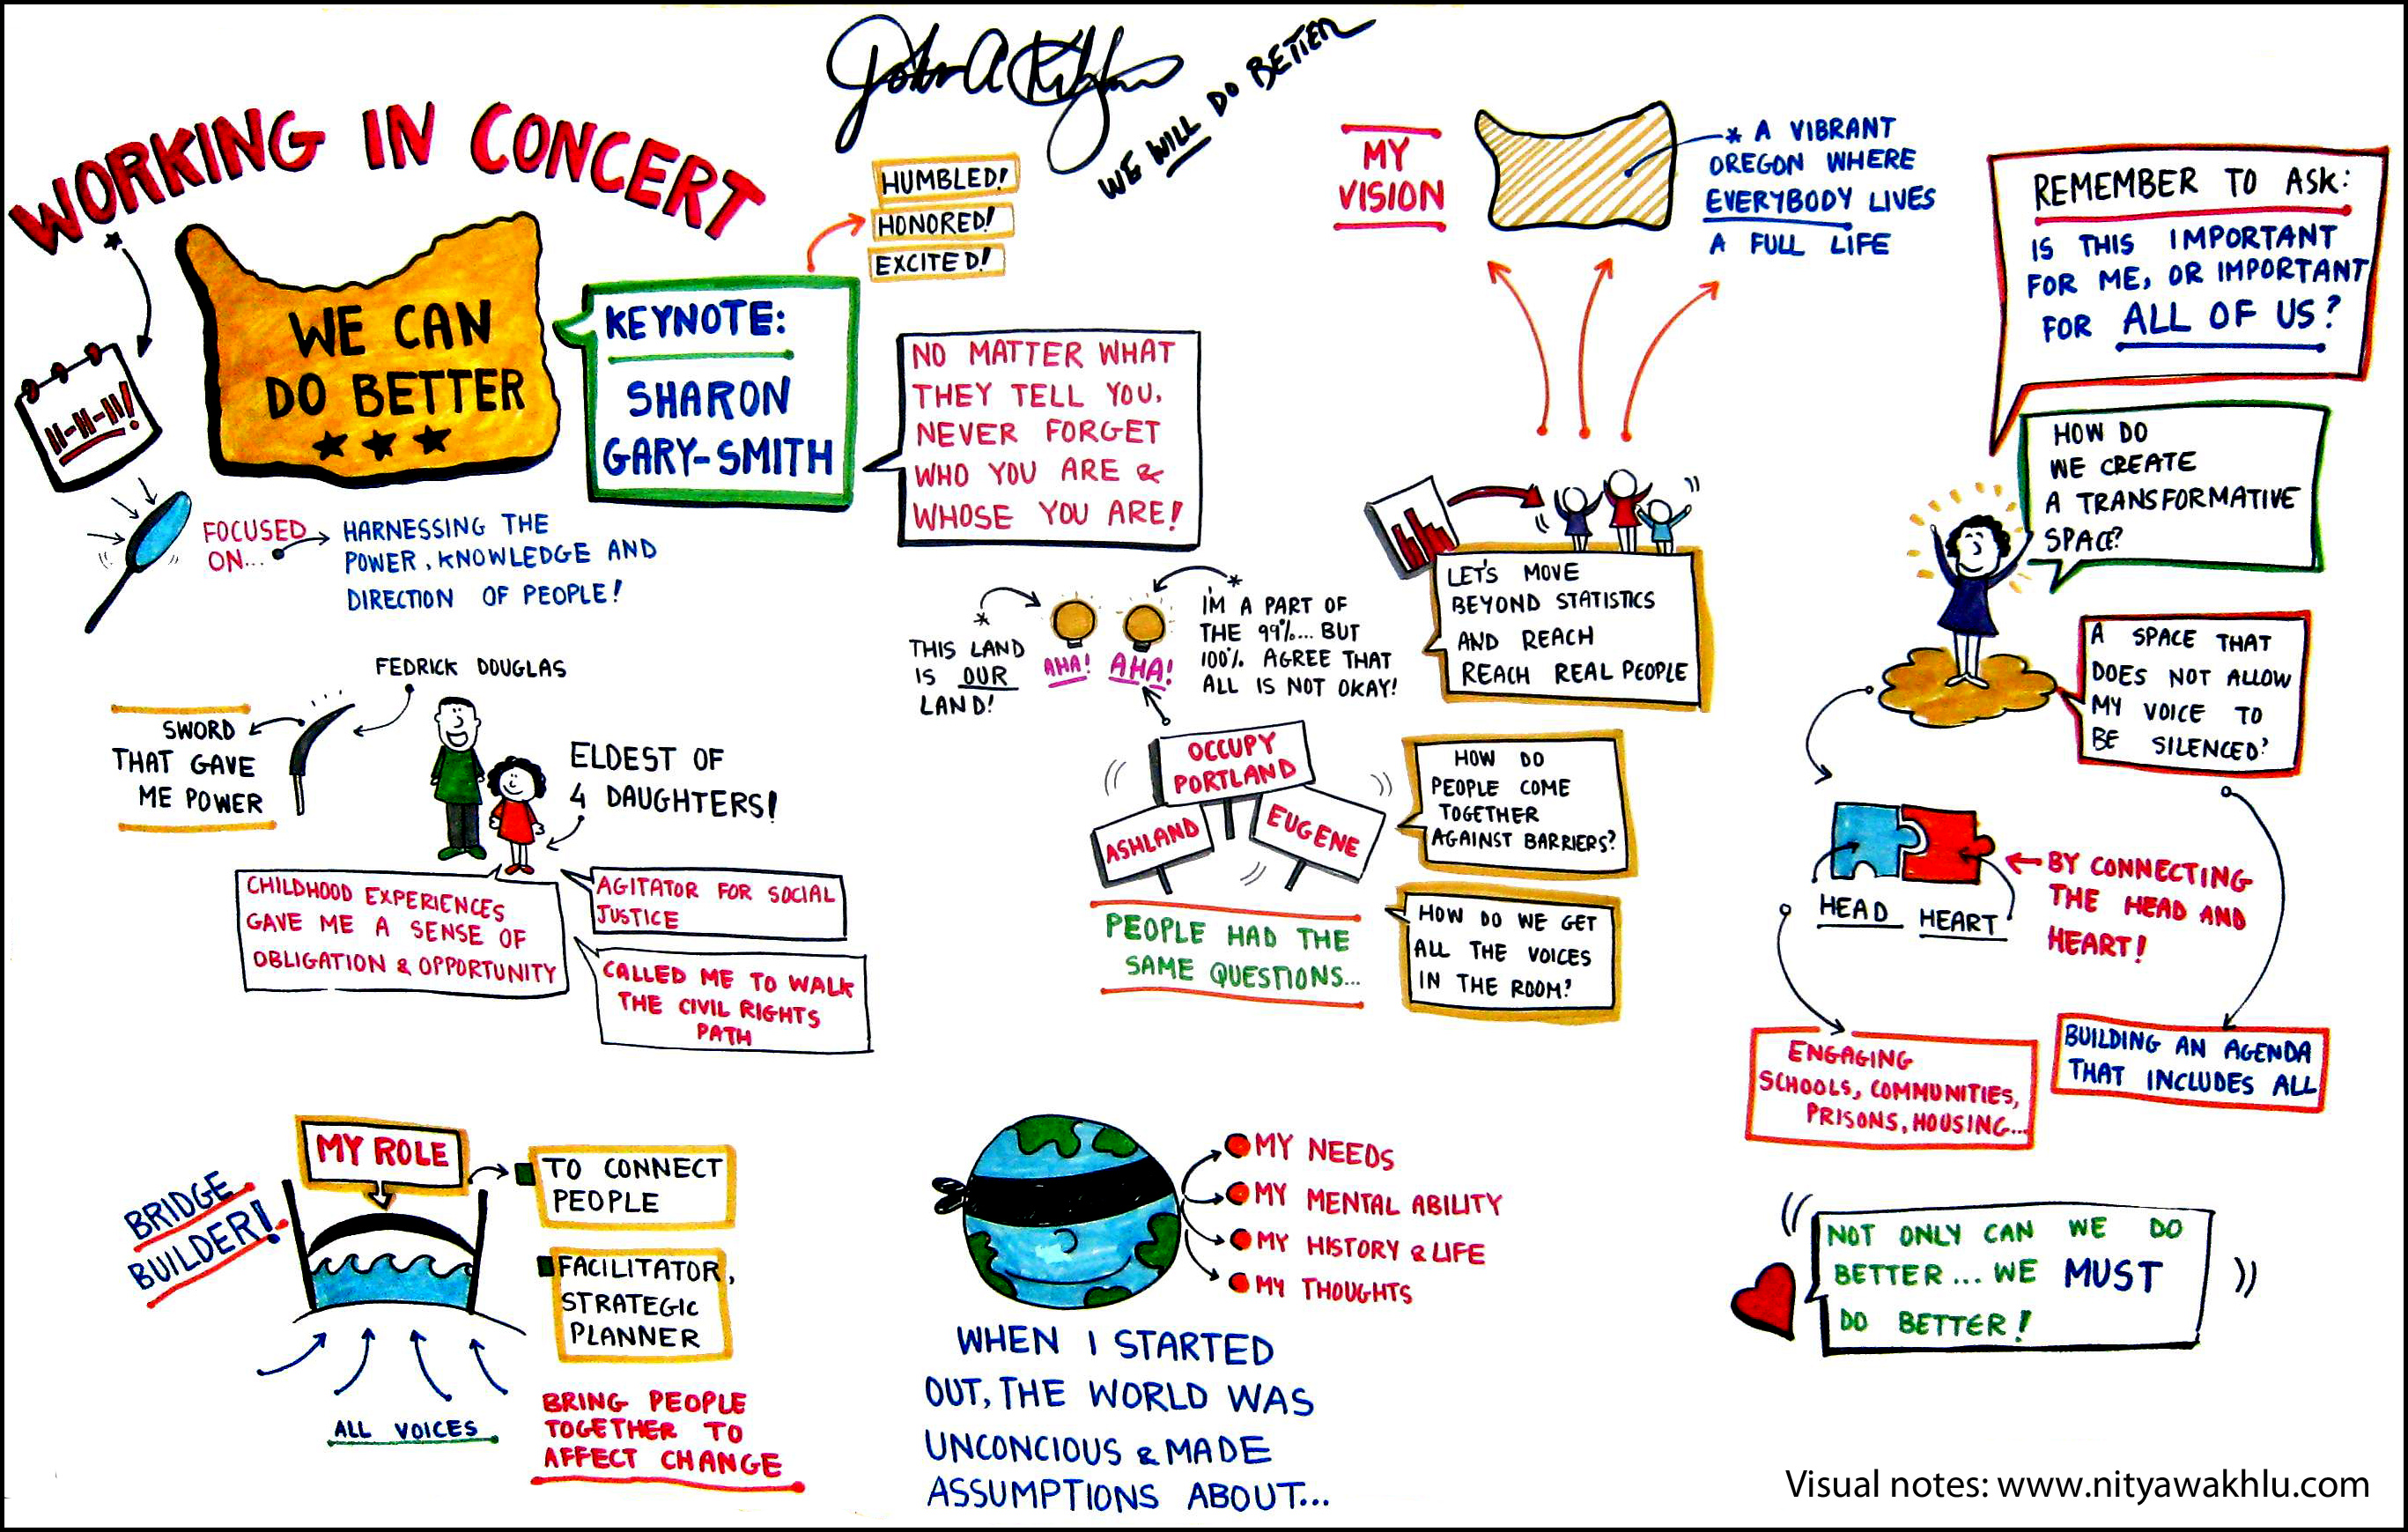 WE WILL DO BETTER
WORKING IN CONCERT
11-11-11!
WE CAN
DO BETTER
KEYNOTE:
SHARON
GARY-SMITH
HUMBLED!
HONORED!
EXCITED!
NO MATTER WHAT
THEY TELL YOU,
NEVER FORGET
WHO YOU ARE &
WHOSE YOU ARE!
FOCUSED
ON...
HARNESSING THE
POWER, KNOWLEDGE AND
DIRECTION OF PEOPLE!
FEDRICK DOUGLAS
SWORD
THAT GAVE
ME POWER
ELDEST OF
4 DAUGHTERS!
CHILDHOOD EXPERIENCES
GAVE ME A SENSE OF
OBLIGATION & OPPORTUNITY
AGITATOR FOR SOCIAL
JUSTICE
CALLED ME TO WALK
THE CIVIL RIGHTS
PATH
MY ROLE
BRIDGE
BUILDER!
TO CONNECT
PEOPLE
FACILITATOR,
STRATEGIC
PLANNER
ALL VOICES
BRING PEOPLE
TOGETHER TO
AFFECT CHANGE
MY
VISION
* A VIBRANT
OREGON WHERE
EVERYBODY LIVES
A FULL LIFE
LET'S MOVE
BEYOND STATISTICS
AND REACH
REACH REAL PEOPLE
THIS LAND
IS OUR
LAND!
AHA!
AHA!
I'M A PART OF
THE 99%... BUT
100% AGREE THAT
ALL IS NOT OKAY!
OCCUPY
PORTLAND
ASHLAND
EUGENE
PEOPLE HAD THE
SAME QUESTIONS...
HOW DO
PEOPLE COME
TOGETHER
AGAINST BARRIERS?
HOW DO WE GET
ALL THE VOICES
IN THE ROOM?
MY NEEDS
MY MENTAL ABILITY
MY HISTORY & LIFE
MY THOUGHTS
WHEN I STARTED
OUT, THE WORLD WAS
UNCONCIOUS & MADE
ASSUMPTIONS ABOUT...
REMEMBER TO ASK:
IS THIS IMPORTANT
FOR ME, OR IMPORTANT
FOR ALL OF US?
HOW DO
WE CREATE
A TRANSFORMATIVE
SPACE?
A SPACE THAT
DOES NOT ALLOW
MY VOICE TO
BE SILENCED?
HEAD HEART
BY CONNECTING
THE HEAD AND
HEART!
ENGAGING
SCHOOLS, COMMUNITIES,
PRISONS, HOUSING...
BUILDING AN AGENDA
THAT INCLUDES ALL
NOT ONLY CAN WE DO
BETTER... WE MUST
DO BETTER!
Visual notes: www.nityawakhlu.com